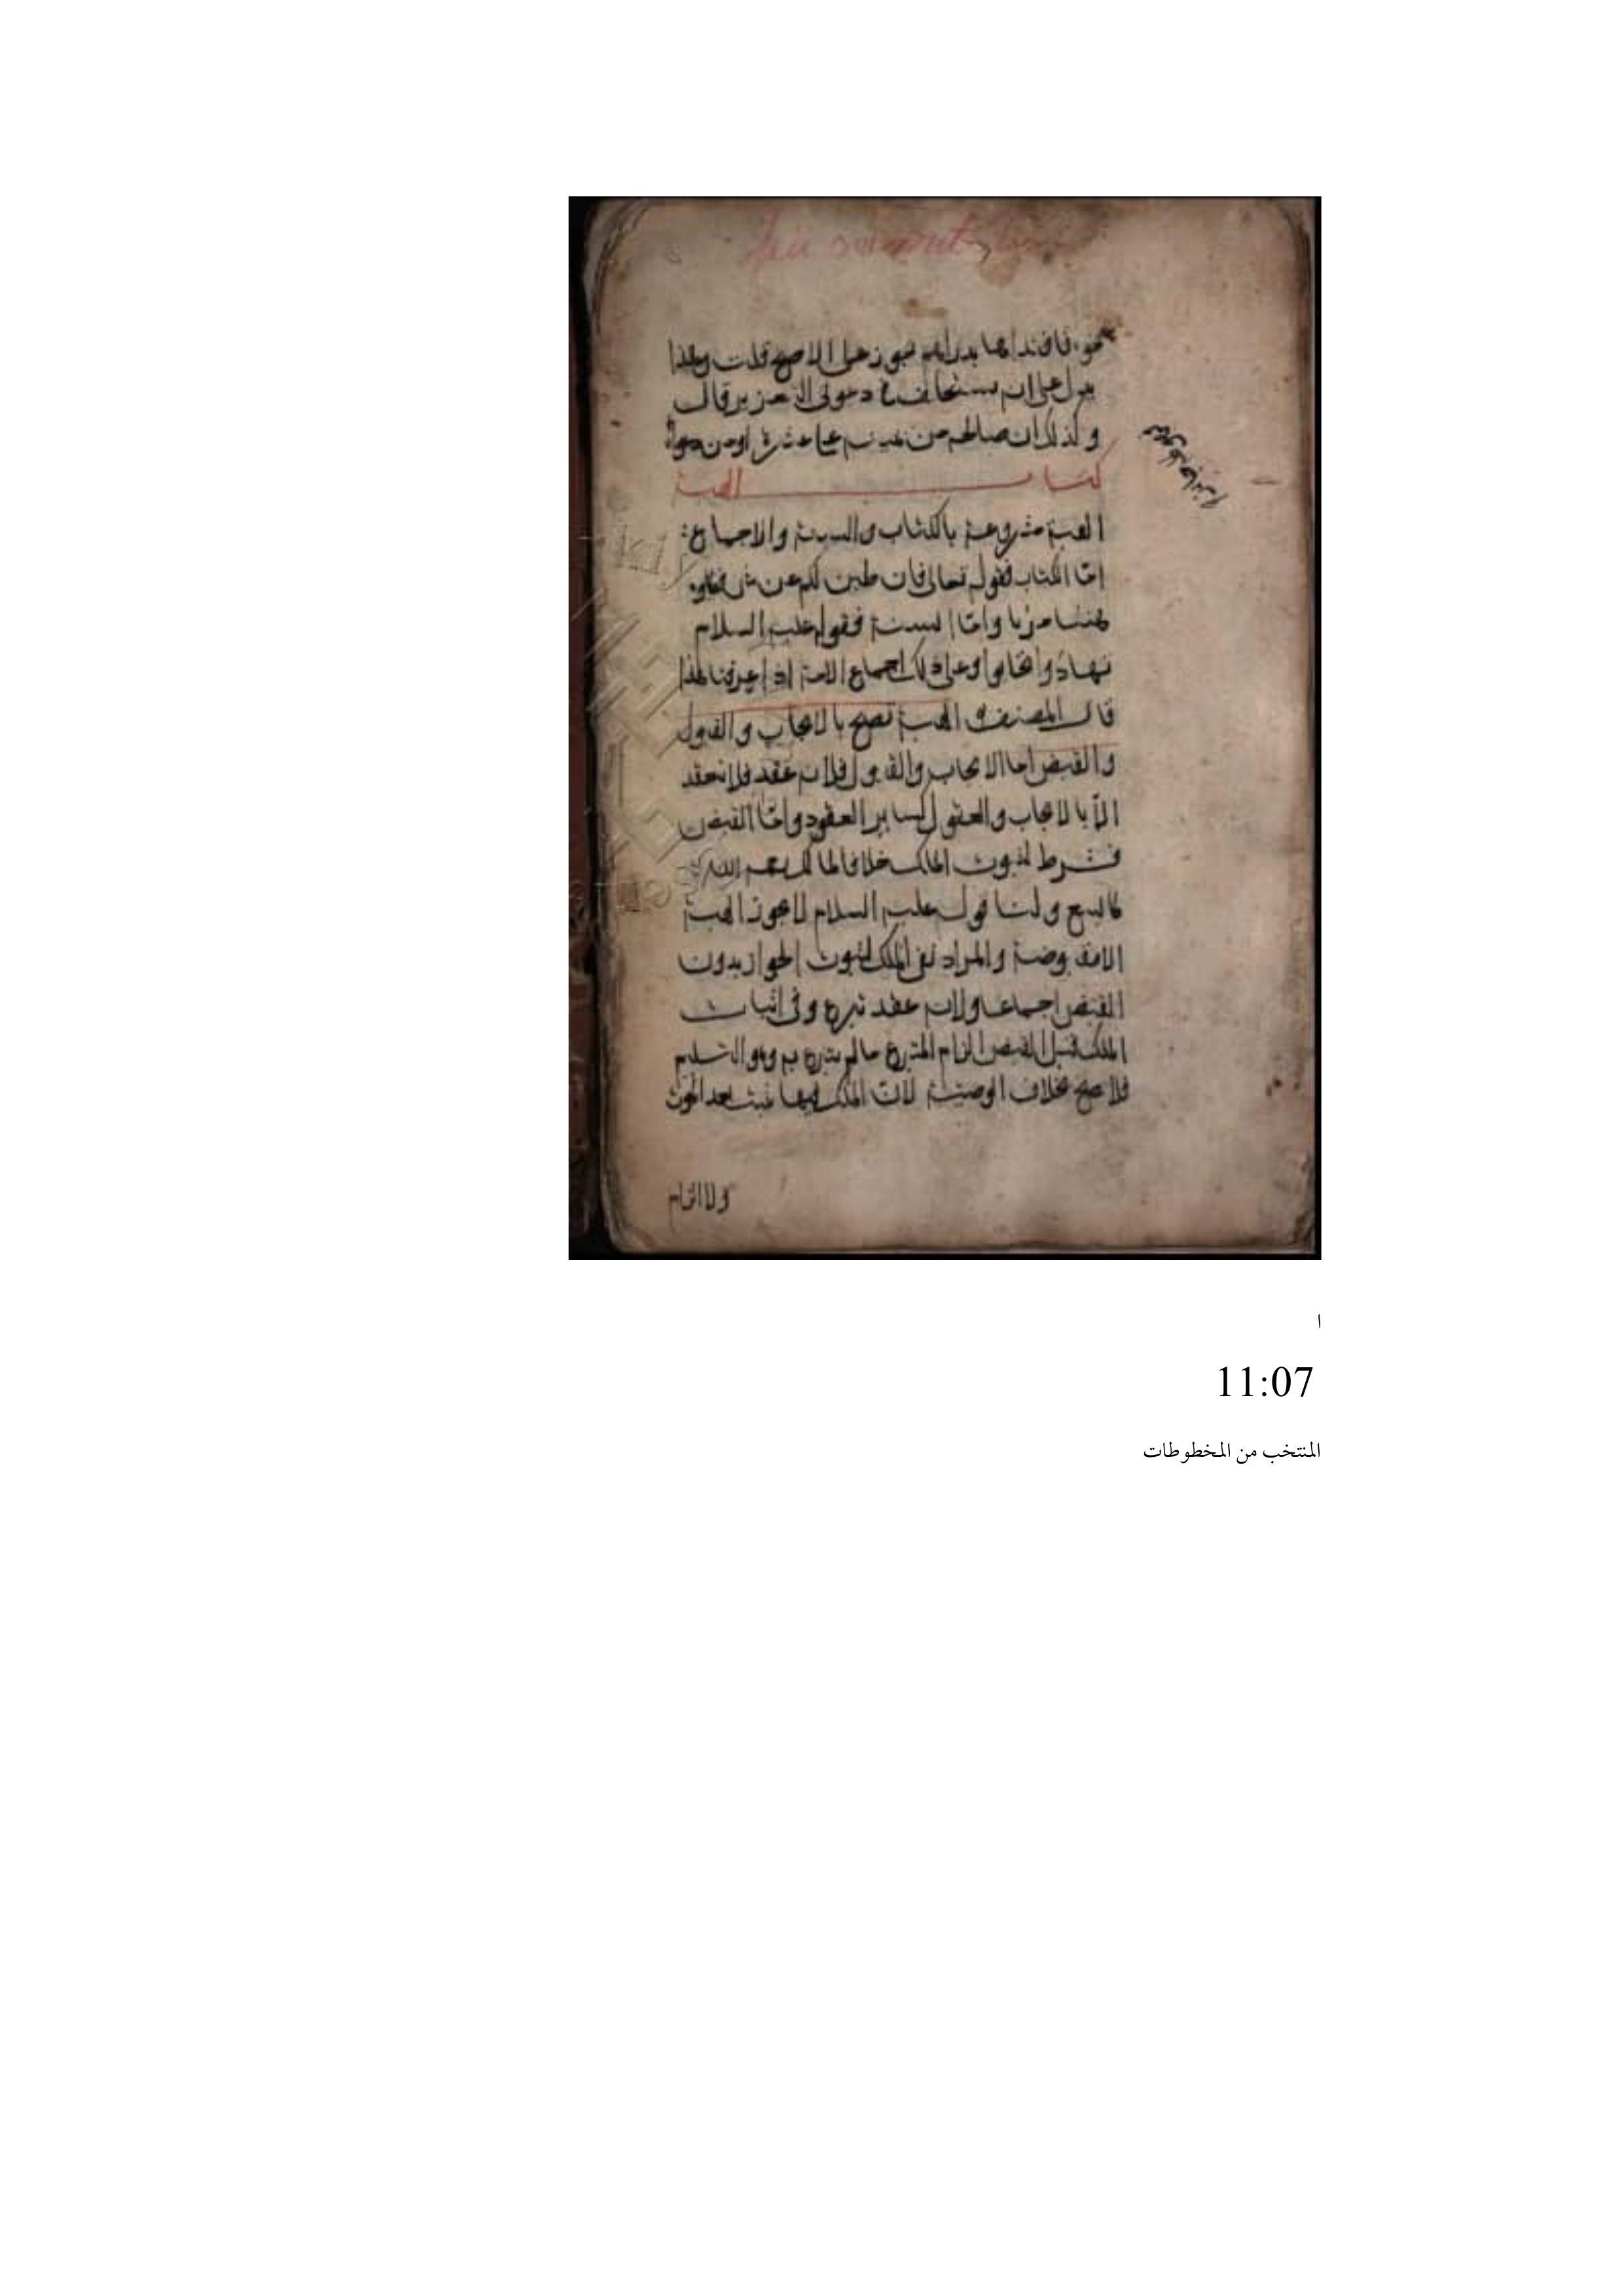 فافتداها بدراهم يجوز على الاصح قلت وهذا
يدل على ان يستحلف في دعوى التعزير قال
وكذلك ان صالحه من على عشرة او من
كتاب الهبة
الهبة مشروعة بالكتاب والسنة والاجماع
امّا الكتاب فقوله تعالى فان طبن لكم عن شى فكلوه
هنيئا مريا وامّا السنة فقوله عليه السلام
تهادوا تحابوا وعلى ذلك اجماع الامة اذا عرفنا هذا
قال المصنف الهبة تصح بالايجاب والقبول
والقبض اما الايجاب والقبول فلانه عقد فلا ينعقد
الّا بالايجاب والقبول كساير العقود وامّا القبض
فشرط لثبوت الملك خلافا لمالك رحمه الله
كالبيع ولنا قوله عليه السلام لا يجوز الهبة
الا مقبوضة والمراد نفى الملك لثبوت الجواز بدون
القبض اجماعا ولانه عقد تبرع وفى اثبات
الملك قبل القبض الزام المتبرع ما لم يتبرع به وهو التسليم
فلا يصح بخلاف الوصية لان الملك فيها يثبت بعد الموت
ولا الزام
ا
11:07
المنتخب من المخطوطات